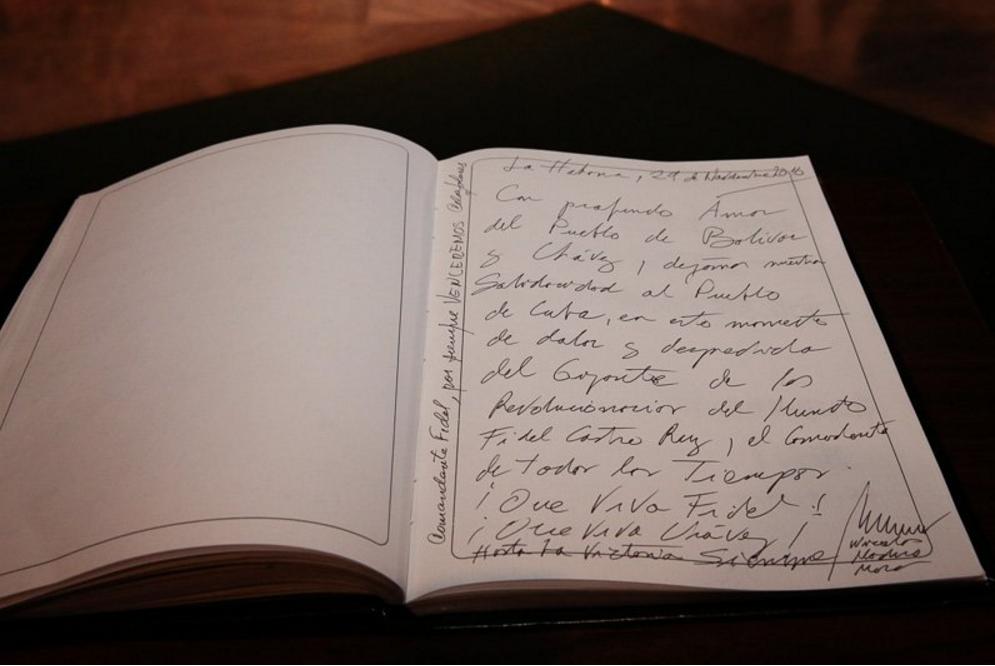 La Habana, 29 de Noviembre 2016
Con profundo Amor
del Pueblo de Bolivar
y Chávez, dejamos nuestra
Solidaridad al Pueblo
de Cuba, en este momento
de dolor y despedida
del Gigante de los
Revolucionarios del Mundo
Fidel Castro Ruz, el Comandante
de todos los Tiempos.
¡Que Viva Fidel!
¡Que Viva Chávez!
Hasta La Victoria Siempre
Nicolás
Maduro
Moro
Comandante Fidel, por siempre VENCEREMOS